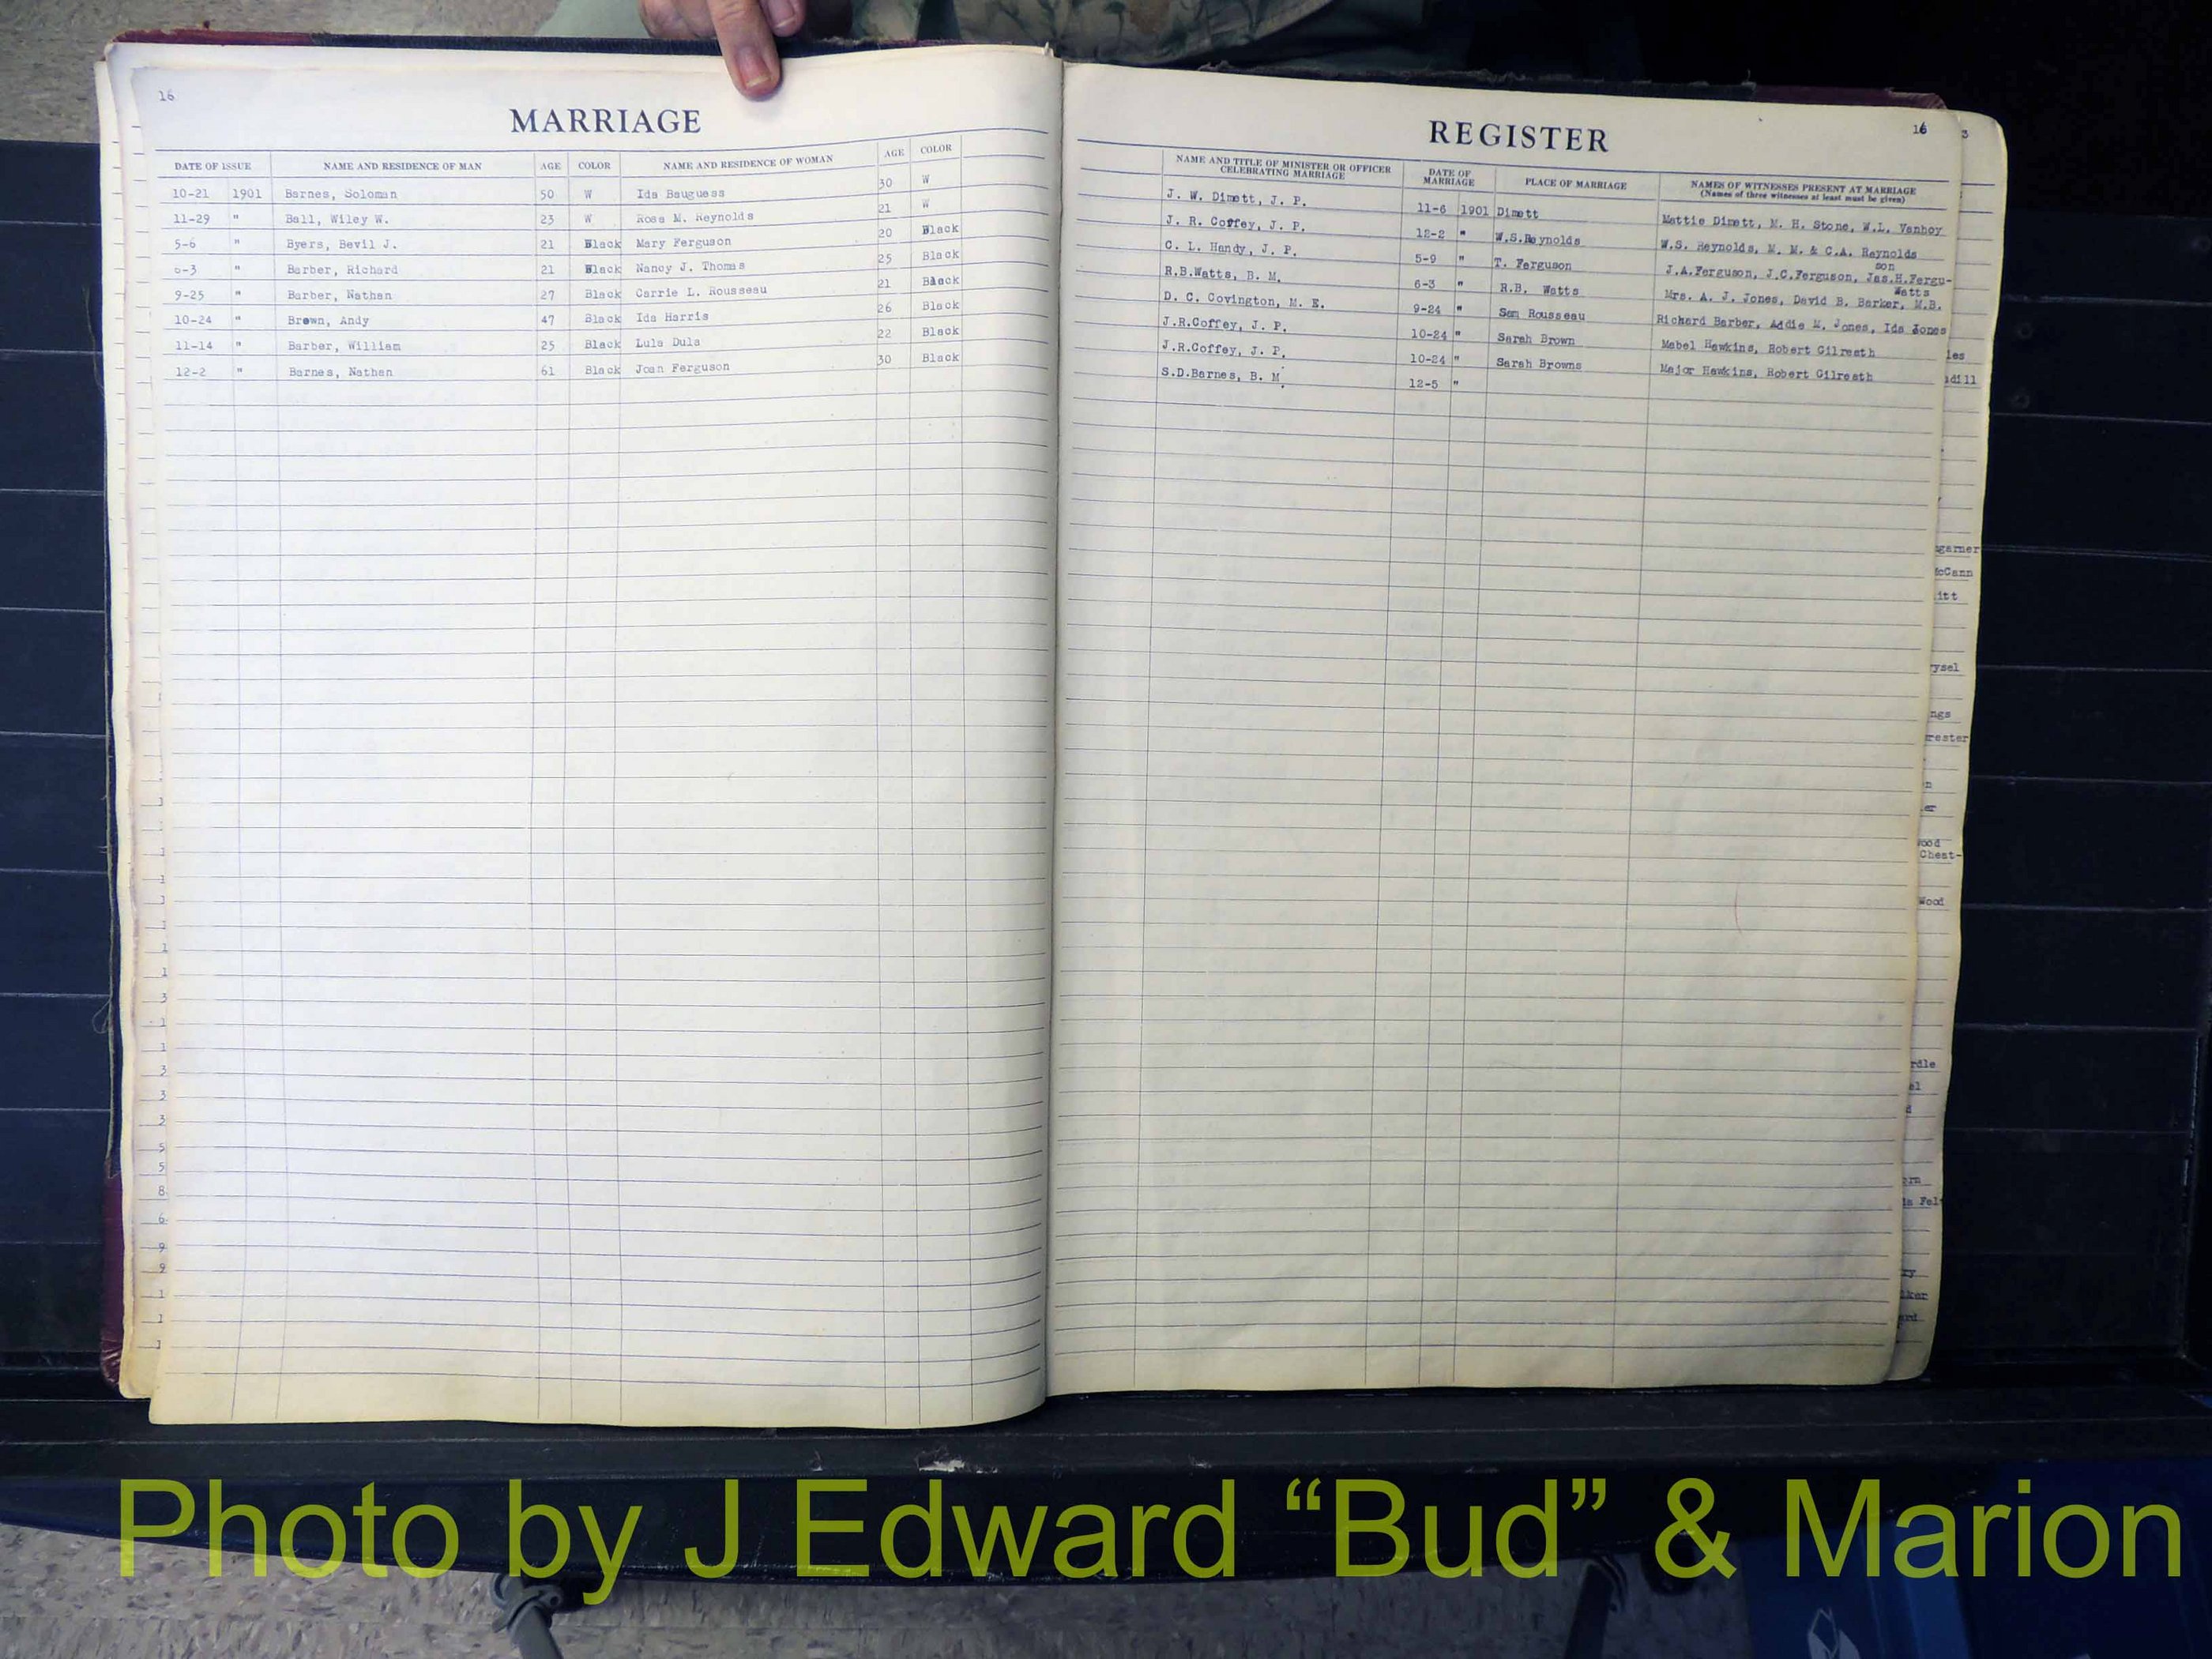 16
MARRIAGE
DATE OF ISSUE NAME AND RESIDENCE OF MAN AGE COLOR NAME AND RESIDENCE OF WOMAN AGE COLOR
10-21 1901 Barnes, Soloman 50 W Ida Bauguess 30 W
11-29 " Ball, Wiley W. 23 W Rosa M. Reynolds 21 W
5-6 " Byers, Bevil J. 21 Black Mary Ferguson 20 Black
6-3 " Barber, Richard 21 Black Nancy J. Thomas 25 Black
9-25 " Barber, Nathan 27 Black Carrie L. Rousseau 21 Black
10-24 " Brown, Andy 47 Black Ida Harris 26 Black
11-14 " Barber, William 25 Black Lula Dula 22 Black
12-2 " Barnes, Nathan 61 Black Joan Ferguson 30 Black
REGISTER
16
NAME AND TITLE OF MINISTER OR OFFICER CELEBRATING MARRIAGE DATE OF MARRIAGE PLACE OF MARRIAGE NAMES OF WITNESSES PRESENT AT MARRIAGE
(Names of three witnesses at least must be given)
J. W. Dimett, J. P. 11-6 1901 Dimett Mattie Dimett, M. H. Stone, W.L. Vanhoy
J. R. Coffey, J. P. 12-2 " W.S.Reynolds W.S. Reynolds, M. M. & C.A. Reynolds
C. L. Handy, J. P. 5-9 " T. Ferguson J.A.Ferguson, J.C.Ferguson, Jas.H.Ferguson
R.B.Watts, B. M. 6-3 " R.B. Watts Mrs. A. J. Jones, David B. Barker, M.B. Watts
D. C. Covington, M. E. 9-24 " Sam Rousseau Richard Barber, Addie M. Jones, Ida Jones
J.R.Coffey, J. P. 10-24 " Sarah Brown Mabel Hawkins, Robert Gilreath
J.R.Coffey, J. P. 10-24 " Sarah Browns Major Hawkins, Robert Gilreath
S.D.Barnes, B. M. 12-5 "
Photo by J Edward “Bud” & Marion